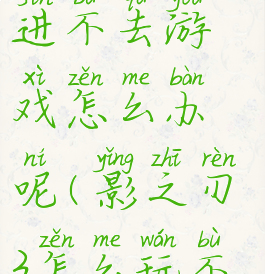 jìn bù qù yóu
进不去游
xì zěn me bàn
戏怎么办
ní yǐng zhī rèn
呢(影之刃
zěn me wán bù
3怎么玩不